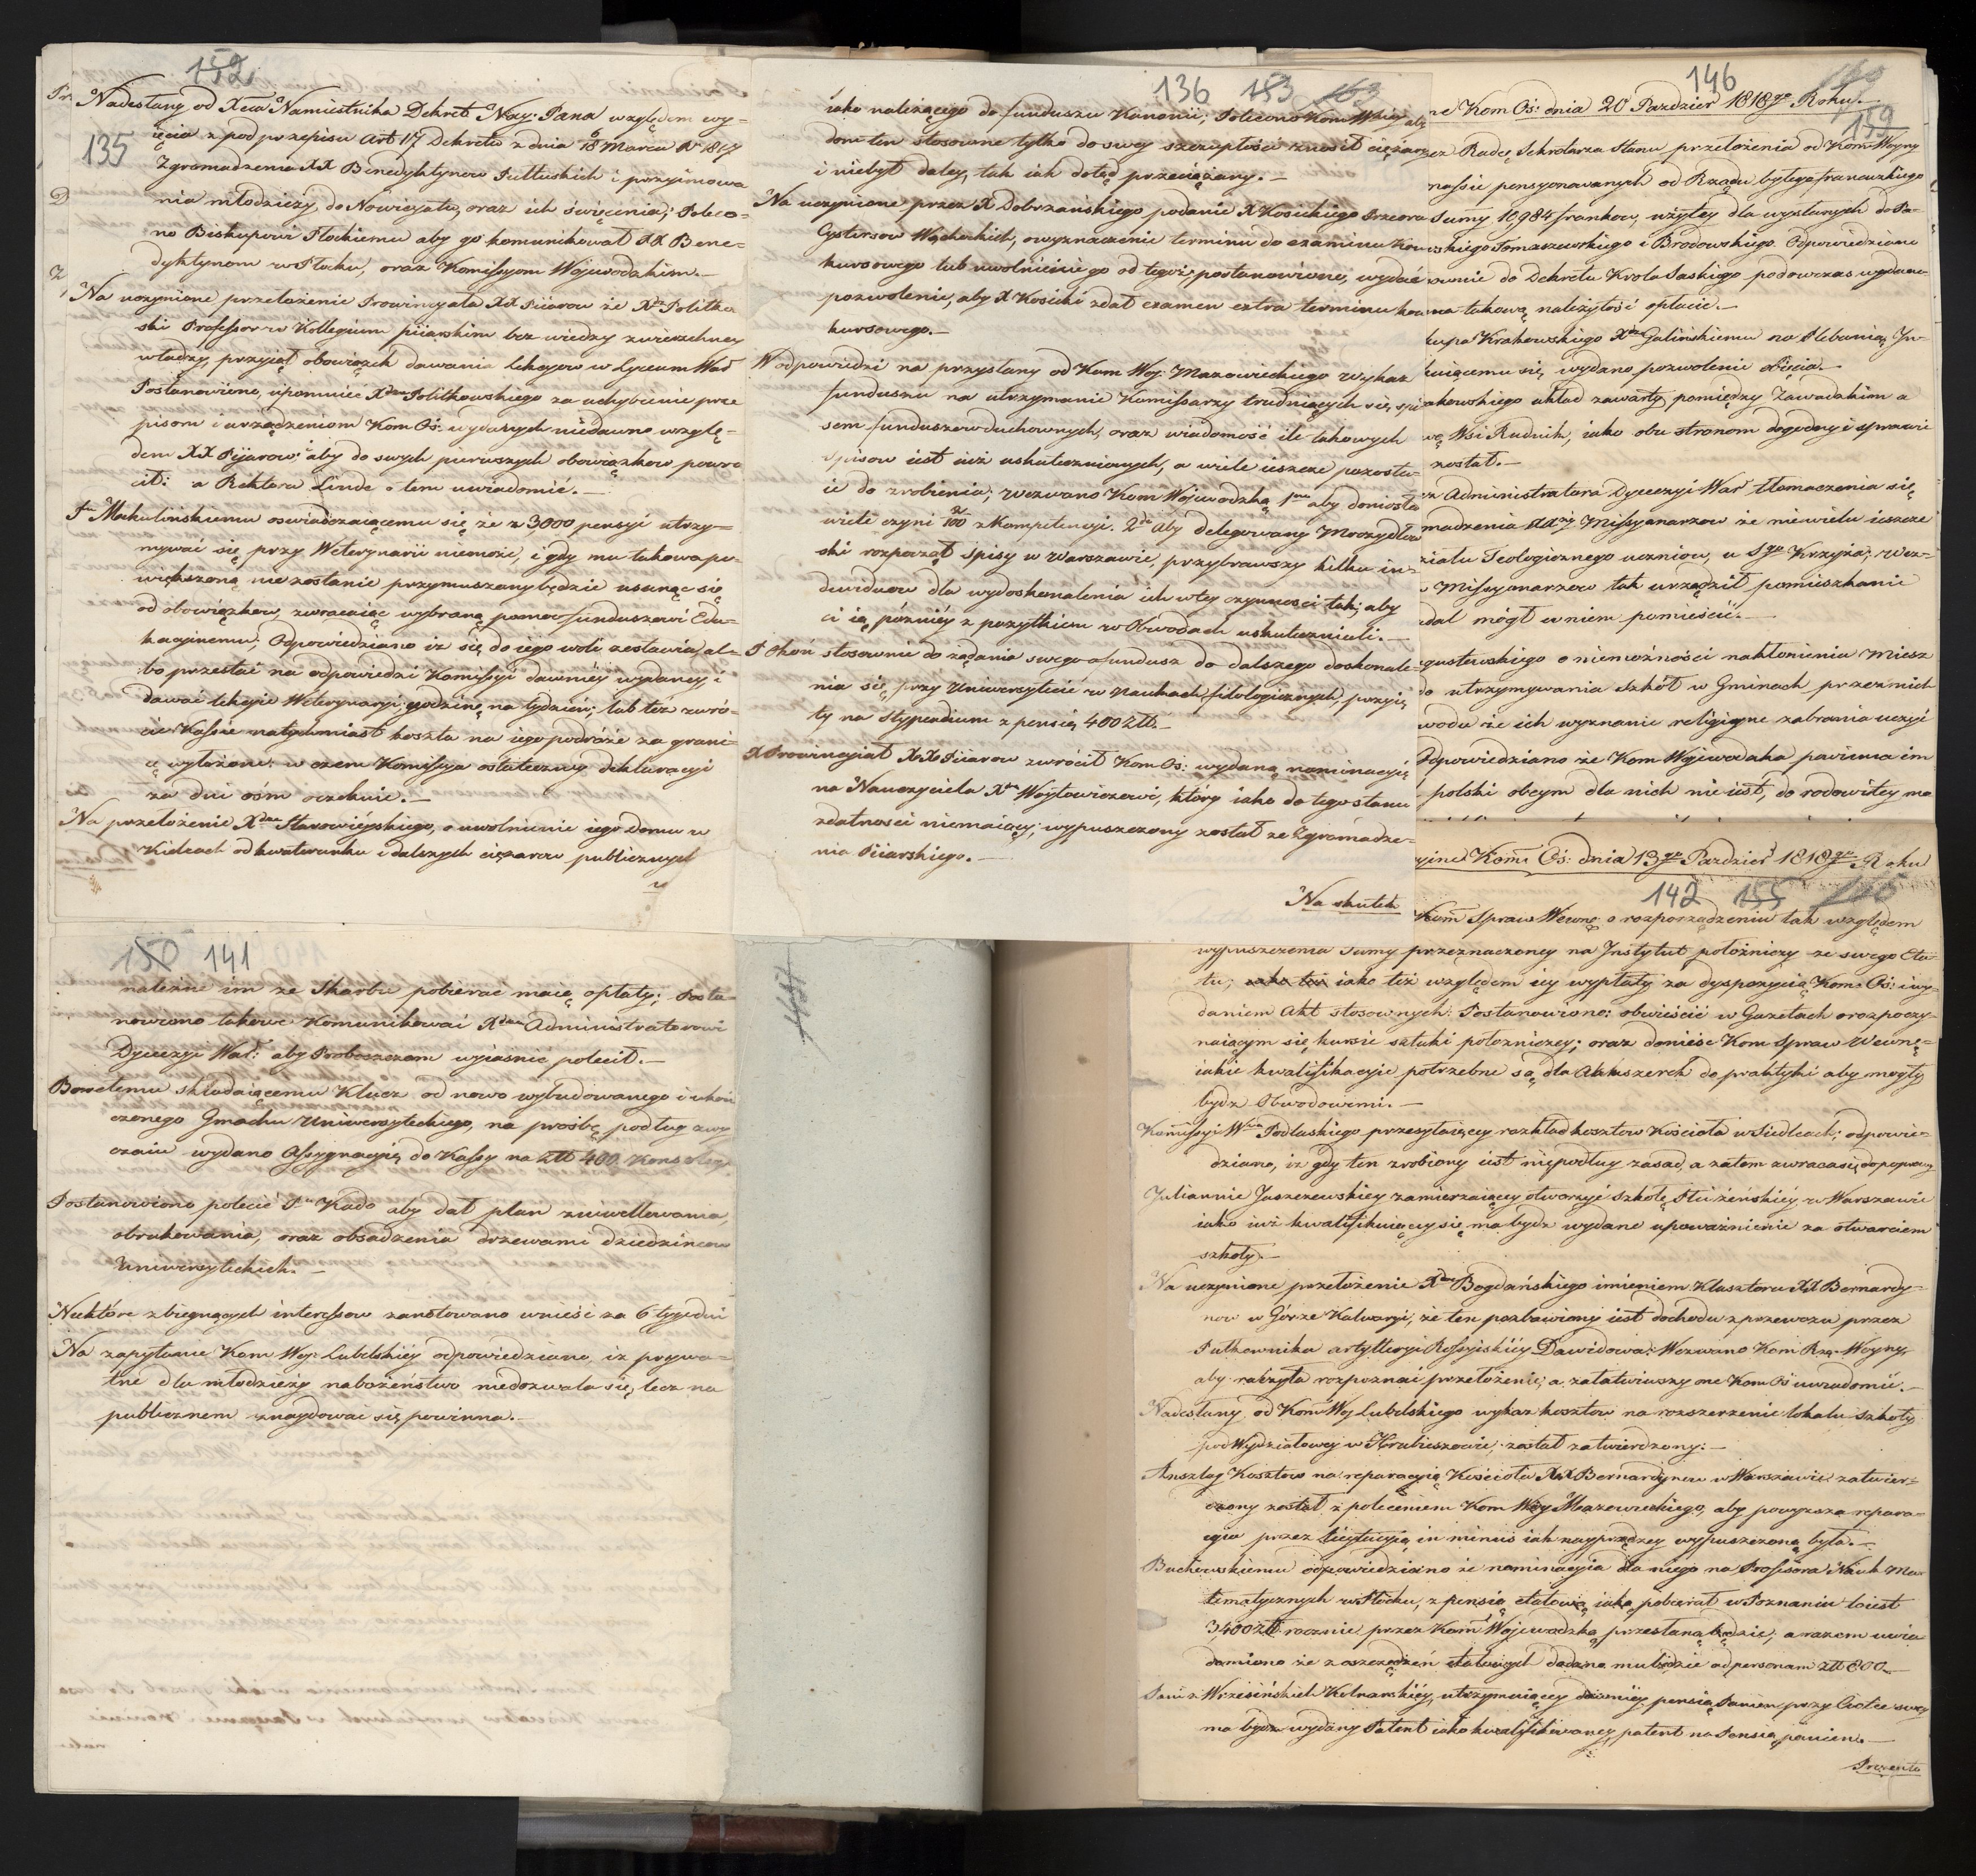 152
135
Nadesłany od Xcia Namiestnika Dekret Nay: Pana względem wy=
ięcia z pod przepisu Art 17 Dekretu z dnia 6/18 Marca R. 1817
Zgromadzenia XX Benedyktynow Pułtuskich i przyimowa
nia młodzieży do Nowicyatu, oraz ich święcenia; Poleco=
no Biskupowi Płockiemu aby go komunikował XX Bene=
dyktynom w Płocku, oraz Komissyom Wojewodzkim.—
Na uczynione przełożenie Prowincyała XX Piiarow że Xdz Politkow
ski Professor w Kollegium piiarskim bez wiedzy zwierzchney
władzy, przyiął obowiązek dawania lekcyow w Lyceum War
Postanowiono, upomnieć Xdza Politkowskiego za uchybienie prze
pisom i urządzeniom Kom Oś: wydanych niedawno wzglę=
dem XX Pijarow; aby do swych pierwszych obowiązkow powro
cił: a Rektora Linde o tem uwiadomić.—
Makulinskiemu oswiadczaiącemu się że z 3,000 pensyi utrzy=
mywać się przy Weterynarii niemoże, i gdy mu takowa po=
większoną nie zostanie przymuszony będzie usunąć się
od obowiązkow, zwracaiąc wybraną pomoc funduszowi Edu=
kacyinemu; Odpowiedziano iż się do iego woli zostawia al=
bo przestać na odpowiedzi Komissyi dawniey wydaney i
dawać lekcyie Weterynaryi godzinę na tydzien; lub też zwró=
cić Kassie natychmiast koszta na iego podróże za grani=
cę wyłożone: w czem Komissya ostateczney deklaracyi
za dni ośm oczekuie.—
Na przełożenie Xdza Starowieyskiego, o uwolnienie iego Domu w
Kielcach od kwaterunku i dalszych ciężarow publicznych
136 153 163
iako należącego do funduszu Kanonii; Polecono Kom Woiey aby
dom ten stosownie tylko do swey szczupłości znosił ciężary
i niebył daley, tak iak dotąd przeciążany.—
Na uczynione przez X Dobrzańskiego podanie X Kosickiego Przeora
Cystersow Wąchockich, o wyznaczenie terminu do examinu kon
kursowego lub uwolnienie go od tegoż; postanowiono, wydać
pozwolenie, aby X Kosicki zdał examen extra terminu kon
kursowego.—
W odpowiedzi na przysłany od Kom Woj: Mazowieckiego wykaz
funduszu na utrzymanie Komissarzy trudniących się spi
sem funduszow duchownych, oraz wiadomość ile takowych
spisow iest iuż uskutecznionych, a wiele ieszcze pozosta=
ie do zrobienia; wezwano Kom Wojewodzką 1mo aby doniosła
wiele czyni 2/100 z Kompetencyi. 2do aby delegowany Moczydłow
ski rozpoczął spisy w Warszawie, przybrawszy kilku in=
dywiduow dla wydoskonalenia ich w tey czynnosci tak; aby
ci ią później z pożytkiem w Obwodach uskuteczniali.—
P. Okóń stosownie do żądania swego o fundusz do dalszego doskonale=
nia się przy Uniwersytecie w Naukach filologicznych, przyię
ty na Stypendium z pensią 400 Złł.—
X Prowincyiał XX Piiarow zwrócił Kom Oś: wydaną nominacyią
na Nauczyciela Xdza Woytowiczowi, który iako do tego stanu
zdatnosci niemaiący; wypuszczony został ze Zgromadze=
nia Piiarskiego.—
Na skutek
146 160
159
ne Kom Oś: dnia 20 Pazdzier 1818go Roku.—
zez Radcę Sekretarza Stanu przełożenia od Kom Woyny
massie pensyonowanych od Rządu byłego francuzkiego
Sumy 10984 frankow, użytey dla wysłanych do Pa=
skiego Tomaszewskiego i Brodowskiego. Odpowiedziano
sownie do Dekretu Krola Saskiego podowczas wydane
ma takową należytość opłacić.—
kupa Krakowskiego Xdza Galińskiemu na Plebanią Jn=
kuiącemu się, wydano pozwolenie obięcia.—
akowskiego układ zawarty pomiędzy Zawadzkim a
wę Wsi Rudnik, iako obu stronom dogodny i sprawie
został.—
ez Administratora Dyecezyi War tłomaczenia się
madzenia XXży Missyonarzow że niewielu ieszcze
ziału Teologicznego uczniow, u Sgo Krzyża; Wez=
Missyonarzow tak urządził pomieszkanie
mógł w niem pomieścić.—
gustowskiego o niemożności nakłonienia Miesz
do utrzymywania szkół w Gminach przez nich
wodu że ich wyznanie religijne zabrania uczyć
Odpowiedziano że Kom Wojewodzka powinna im
polski obcym dla nich nie iest, do rodowitey mo
yjne Kom Oś: dnia 13go Pazdzier 1818go Roku
142 155
Kom Spraw Wewnę: o rozporządzeniu tak względem
wypuszczenia Sumy przeznaczoney na Jnstytut położniczy ze swego Eta
tu; iako też względem iey wypłaty za dyspozycią Kom: Oś: i wy=
daniem Akt stosownych: Postanowiono: obwieścić w Gazetach o rozpoczy=
naiącym się kursie sztuki położniczey; oraz donieść Kom Spraw Wewnę=
iakie kwalifikacyie potrzebne są dla Akuszerek do praktyki aby mogły
bydz Obwodowemi.—
Komissyi Wwa Podlaskiego przesyłaiącey rozkład kosztow Kościoła w Siedlcach; odpowie=
dziano, iż gdy ten zrobiony iest niepodług zasad, a zatem zwraca się do poprawy
Juliannie Juszczewskiey zamierzaiącey otworzyć Szkołę Płci żeńskiéy w Warszawie
iako iuż kwalifikuiącey się ma bydz wydane upoważnienie za otwarciem
szkoły.—
Na uczynione przełożenie Xdza Bogdańskiego imieniem Klasztoru XX Bernardy=
now w Górze Kalwaryi, że ten pozbawiony iest dochodu z przewozu przez
Pułkownika artylleryi Rossyiskiéy Dawidowa; Wezwano Kom Rzą: Woyny,
aby raczyła rozpoznać przełożenie; a załatwiwszy one Kom Oś uwiadomić.—
Nadesłany od Kom Woj Lubelskiego wykaz kosztow na rozszerzenie lokalu szkoły
podWydziałowey w Hrubieszowie; został zatwierdzony.—
Anszlag Kosztow na reparacyią Kościoła XX Bernardynow w Warszawie zatwier=
dzony został z poleceniem Kom Woy Mazowieckiego, aby powyższa repara=
cyia przez licytacyią in minus iak nayprędzey wypuszczoną była.—
Buchowskiemu odpowiedziano że nominacyia dla niego na Professora Nauk Ma=
tematycznych w Płocku, z pensią etatową iaką pobierał w Poznaniu to iest
3,400 Złł rocznie przez Kom Wojewodzką przesłaną będzie; a razem uwia
domiono że z oszczędzeń etatowych dodano mu będzie ad personam złł 600.—
Pani z Wrzesińskich Kotnarskiéy, utrzymuiącey dawniéy pensią Panien przy Ciotce swey
ma bydz wydany Patent iako kwalifikowaney, patent na Pensią panien.—
Prezenta
150 141
należne im ze Skarbu pobierać maią opłaty; Posta=
nowiono takowe Komunikować Xdzu Administratorowi
Dyecezyi War: aby Proboszczom wyiasnić polecił.—
Bowetemu składaiącemu Klucz od nowo wybudowanego i ukoń
czonego Gmachu Uniwersyteckiego, na prośbę podług zwy
czaiu wydano Assygnacyią do Kassy na Złł 400
Postanowiono polecić Pu Kado aby dał plan zniwellowania,
obrukowania, oraz obsadzenia drzewami dziedzińcow
Uniwersyteckich.—
Niektóre z biegnących interessow zanotowano wnieść za 6 tygodni
Na zapytanie Kom Woj: Lubelskiéy odpowiedziano, iż prywa=
tne dla młodzieży nabożeństwo niedozwala się, lecz na
publicznem znaydować się powinna.—